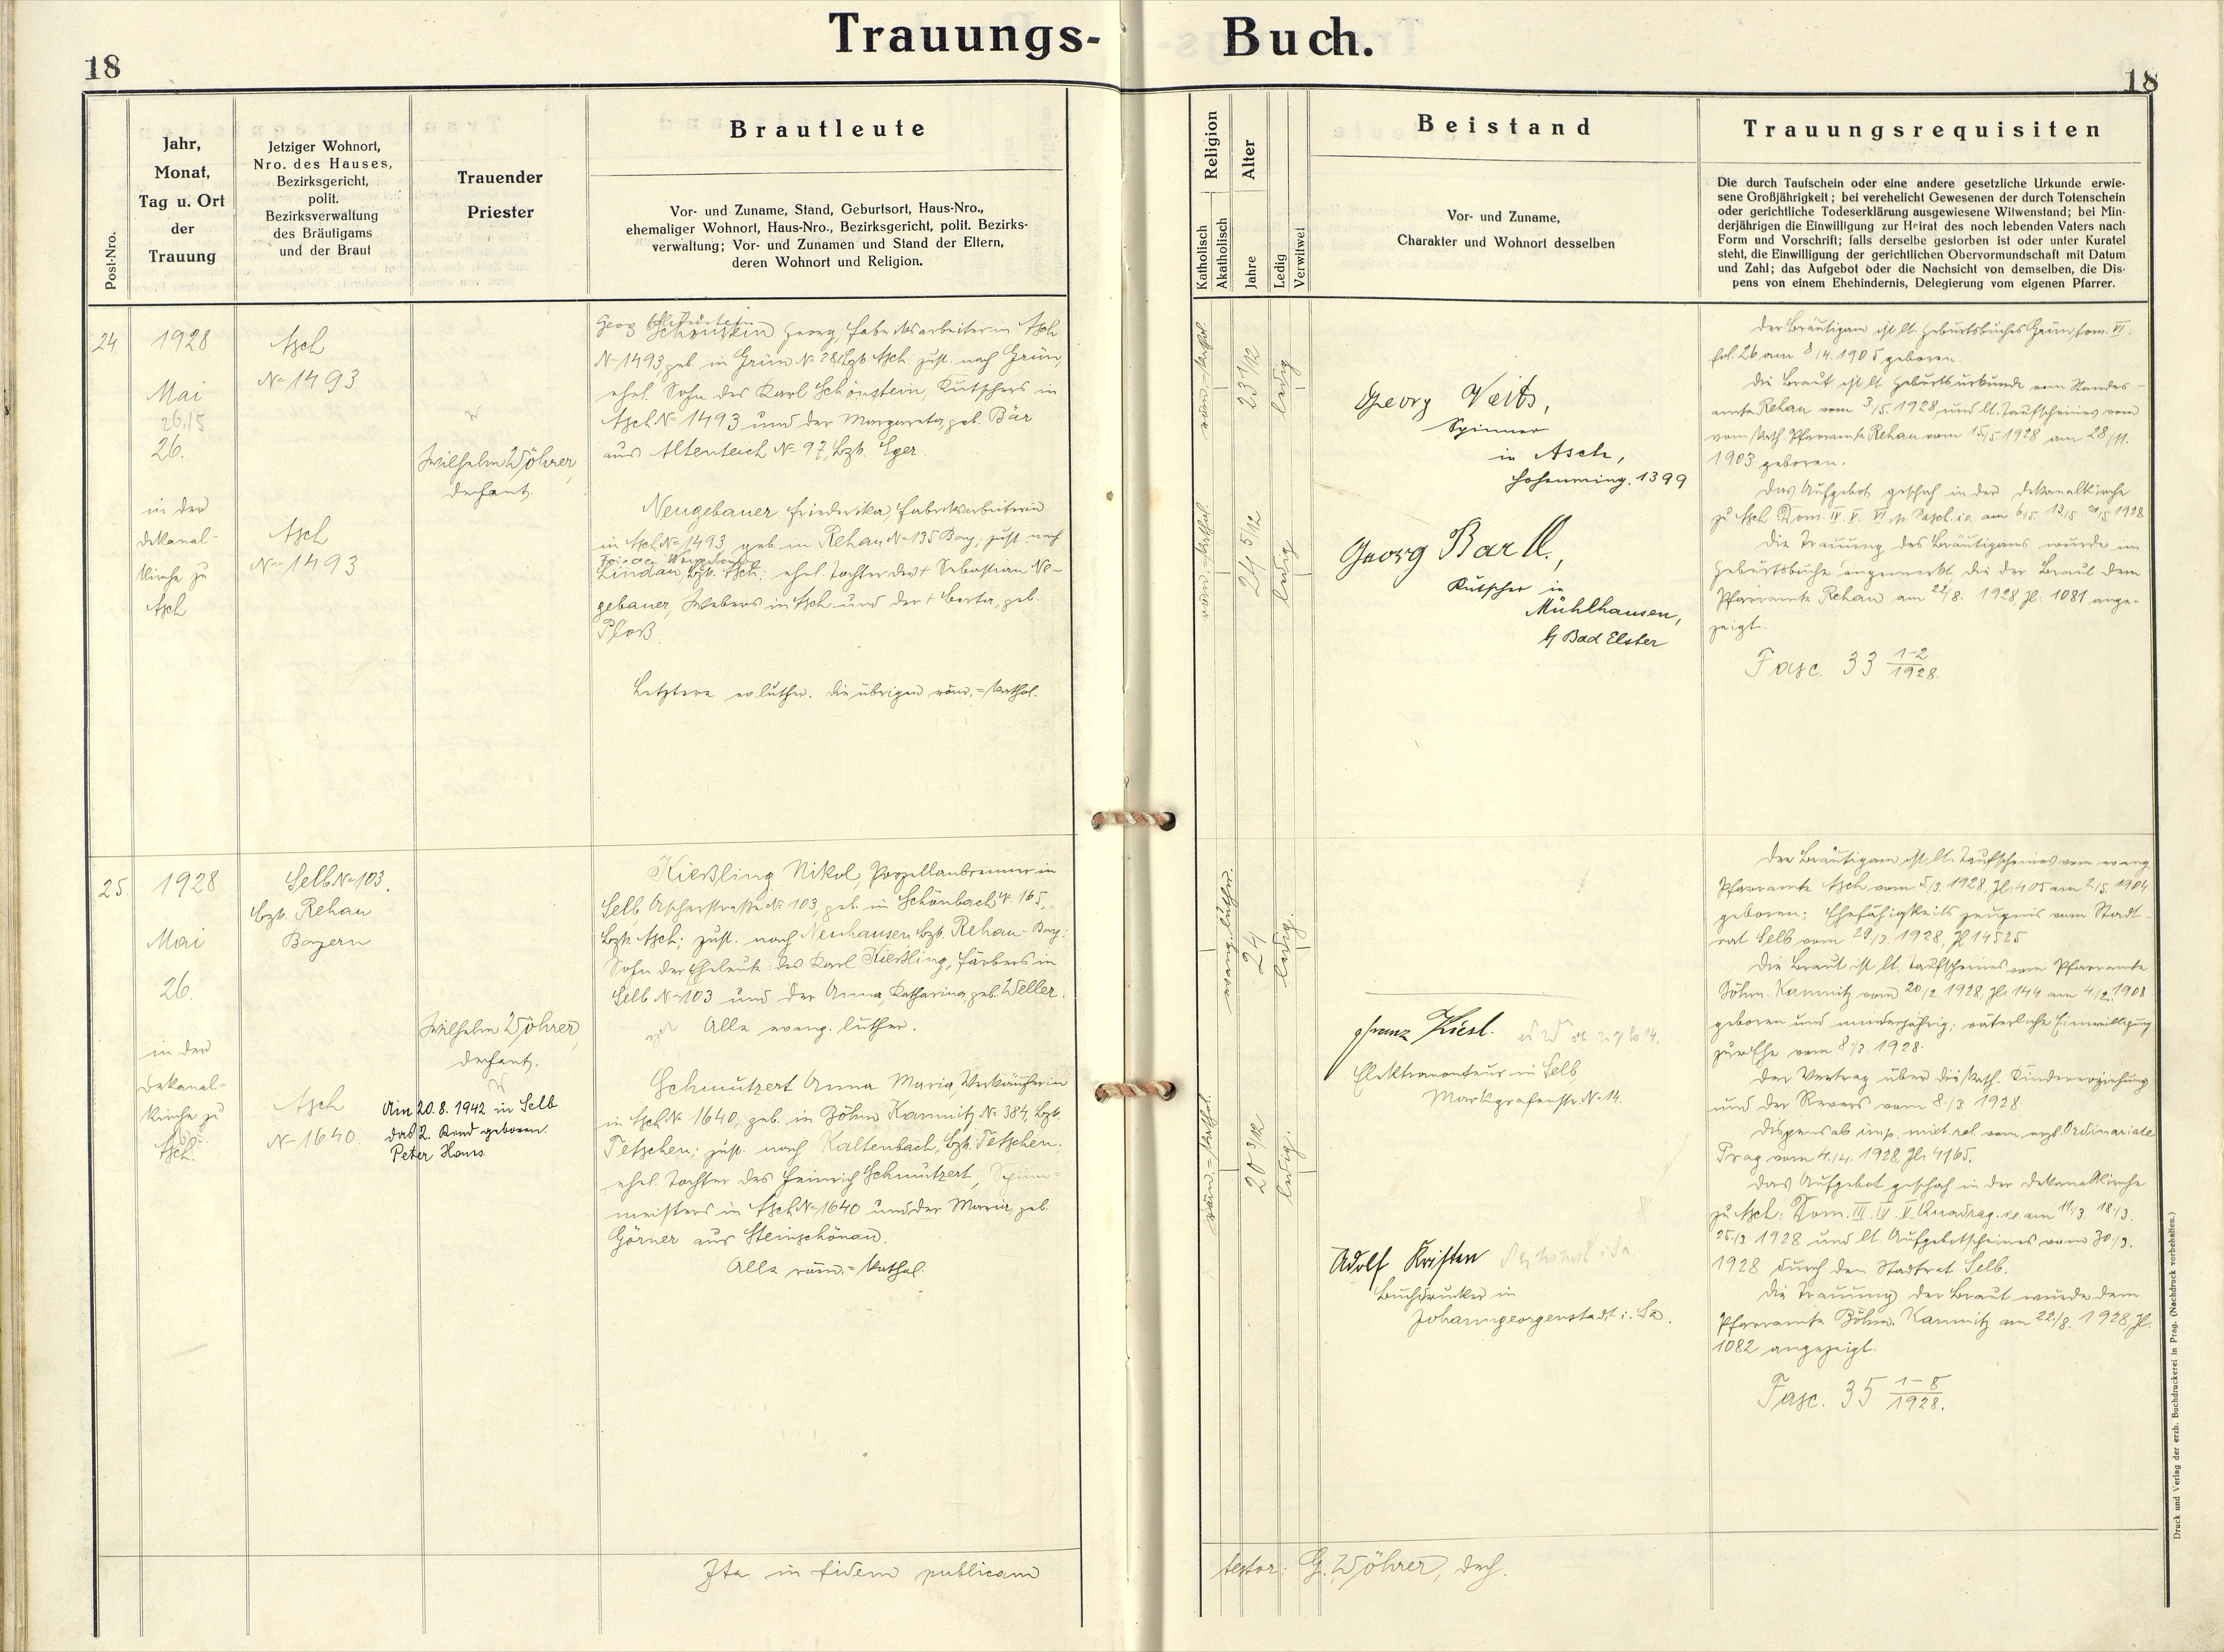 Trauungs-Buch.
18
18
Post-Nro.
Jahr,
Monat,
Tag u. Ort
der
Trauung
Jetziger Wohnort,
Nro. des Hauses,
Bezirksgericht,
polit.
Bezirksverwaltung
des Bräutigams
und der Braut
Trauender
Priester
Brautleute
Vor- und Zuname, Stand, Geburtsort, Haus-Nro.,
ehemaliger Wohnort, Haus-Nro., Bezirksgericht, polit. Bezirks-
verwaltung; Vor- und Zunamen und Stand der Eltern,
deren Wohnort und Religion.
Religion
Katholisch
Akatholisch
Alter
Jahre
Ledig
Verwitwet
Beistand
Vor- und Zuname,
Charakter und Wohnort desselben
Trauungsrequisiten
Die durch Taufschein oder eine andere gesetzliche Urkunde erwie-
sene Großjährigkeit; bei verehelicht Gewesenen der durch Totenschein
oder gerichtliche Todeserklärung ausgewiesene Witwenstand; bei Min-
derjährigen die Einwilligung zur Heirat des noch lebenden Vaters nach
Form und Vorschrift; falls derselbe gestorben ist oder unter Kuratel
steht, die Einwilligung der gerichtlichen Obervormundschaft mit Datum
und Zahl; das Aufgebot oder die Nachsicht von demselben, die Dis-
pens von einem Ehehindernis, Delegierung vom eigenen Pfarrer.
24.
1928
Mai
26./5
26.
in der
Dekanal-
kirche zu
Asch
Asch
N= 1493
Asch
N= 1493
Wilhelm Wöhrer,
Dechant.
Georg Schönstein
Georg, Fabriksarbeiter in Asch
N= 1493, geb. in Grün N= 28, Bzk. Asch zust. nach Grün,
ehel. Sohn des Karl Schönstein, Kutschers in
Asch N= 1493 und der Margareta, geb. Bär
aus Altenteich N= 97, Bzk. Eger.
Neugebauer Friederika, Fabriksarbeiterin
in Asch N= 1493, geb. in Rehau N= 135 Bay., zust. nach
Lindau, Bzk. Asch; ehel. Tochter des † Sebastian Ne-
gebauer, Webers in Asch und der † Berta, geb.
Ploß.
Letztere ev. luther. die übrigen röm.=kathol.
röm.-kathol.
23 1/12
ledig
röm.-kathol.
24 5/12
ledig
Georg Veits,
Spinner
in Asch,
1399
Georg Bartl.,
Kutscher in
Mühlhausen,
b/ Bad Elster
Der Bräutigam ist lt. Geburtsbuches Grün tom. VI.
fol. 26 am 8/4. 1905 geboren.
Die Braut ist lt. Geburtsurkunde vom Standes-
amte Rehau vom 3/5. 1928, und lt. Taufscheines vom
vom kath. Pfarramte Rehau vom 15/5 1928 am 28/11.
1903 geboren.
Das Aufgebot geschah in der Dekanalkirche
zu Asch Dom. IV. V. VI. p. Pasch. i.e. am 6/5. 13/5. 20/5 1928
Die Trauung des Bräutigams wurde im
Geburtsbuche angemerkt, die der Braut dem
Pfarramte Rehau am 22/8. 1928, Zl. 1081 ange-
zeigt.
Fasc. 33 1-2/1928.
25.
1928
Mai
26.
in der
Dekanal-
kirche zu
Asch.
Selb N= 103.
Bzk. Rehau
Bayern
Asch
N= 1640.
Wilhelm Wöhrer,
Dechant.
Am 20. 8. 1942 in Selb
das 2. Kind geboren.
Peter Hans
Kießling Nikol, Porzellanbrenner in
Selb, Ascherstraße N= 103, geb. in Schönbach N. 165,
Bzk. Asch; zust. nach Neuhausen Bzk. Rehau - Bay.;
Sohn der Eheleute: des Karl Kießling, Färbers in
Selb N= 103 und der Anna, Katharina, geb. Weller.
Alle evang. luther.
Schmutzert Anna Maria, Verkäuferin
in Asch N= 1640, geb. in Böhm Kamnitz N= 384, Bzk.
Tetschen; zust. nach Kaltenbach, Bzk. Tetschen;
ehel. Tochter des Heinrich Schmutzert, Spinn-
meisters in Asch N= 1640 und der Maria, geb.
Görner aus Steinschönau.
Alle röm.=kathol.
evang. luther.
24
ledig.
röm.=kathol.
20 3/12
ledig.
Franz Kiesl.
Elektromonteur in Selb
Markgrafenstr. N= 14.
Adolf Kristen
Buchdrucker in
Johanngeorgenstadt i. Sa.
Der Bräutigam ist lt. Taufscheines vom evang.
Pfarramte Asch vom 5/3. 1928, Zl. 405 am 2/5. 1904
geboren; Ehefähigkeitszeugnis vom Stadt-
rat Selb vom 29/3. 1928, Zl 14525
Die Braut ist lt. Taufscheines vom Pfarramte
Böhm. Kamnitz vom 20/2. 1928, Zl. 144 am 4./2. 1908
geboren und minderjährig; väterliche Einwilligung
zur Ehe vom 8./3. 1928.
Der Vertrag über die kath. Kindererziehung
und der Revers vom 8./3. 1928
Dispens ab imp. mixt. rel. vom erzb. Ordinariate
Prag vom 4./4. 1928, Zl. 4165.
Das Aufgebot geschah in der Dekanalkirche
zu Asch: Dom. III. IV. V. Quadrag. i.e. am 11./3. 18./3.
25./3 1928 und lt. Aufgebotscheines vom 30./3.
1928 durch den Stadtrat Selb.
Die Trauung der Braut wurde dem
Pfarramte Böhm. Kamnitz am 22./8. 1928, Zl.
1082 angezeigt.
Fasc. 35 1-8/1928.
Ita in fidem publicam
testor: G. Wöhrer, Dech.
Druck und Verlag der erzb. Buchdruckerei in Prag. (Nachdruck vorbehalten.)